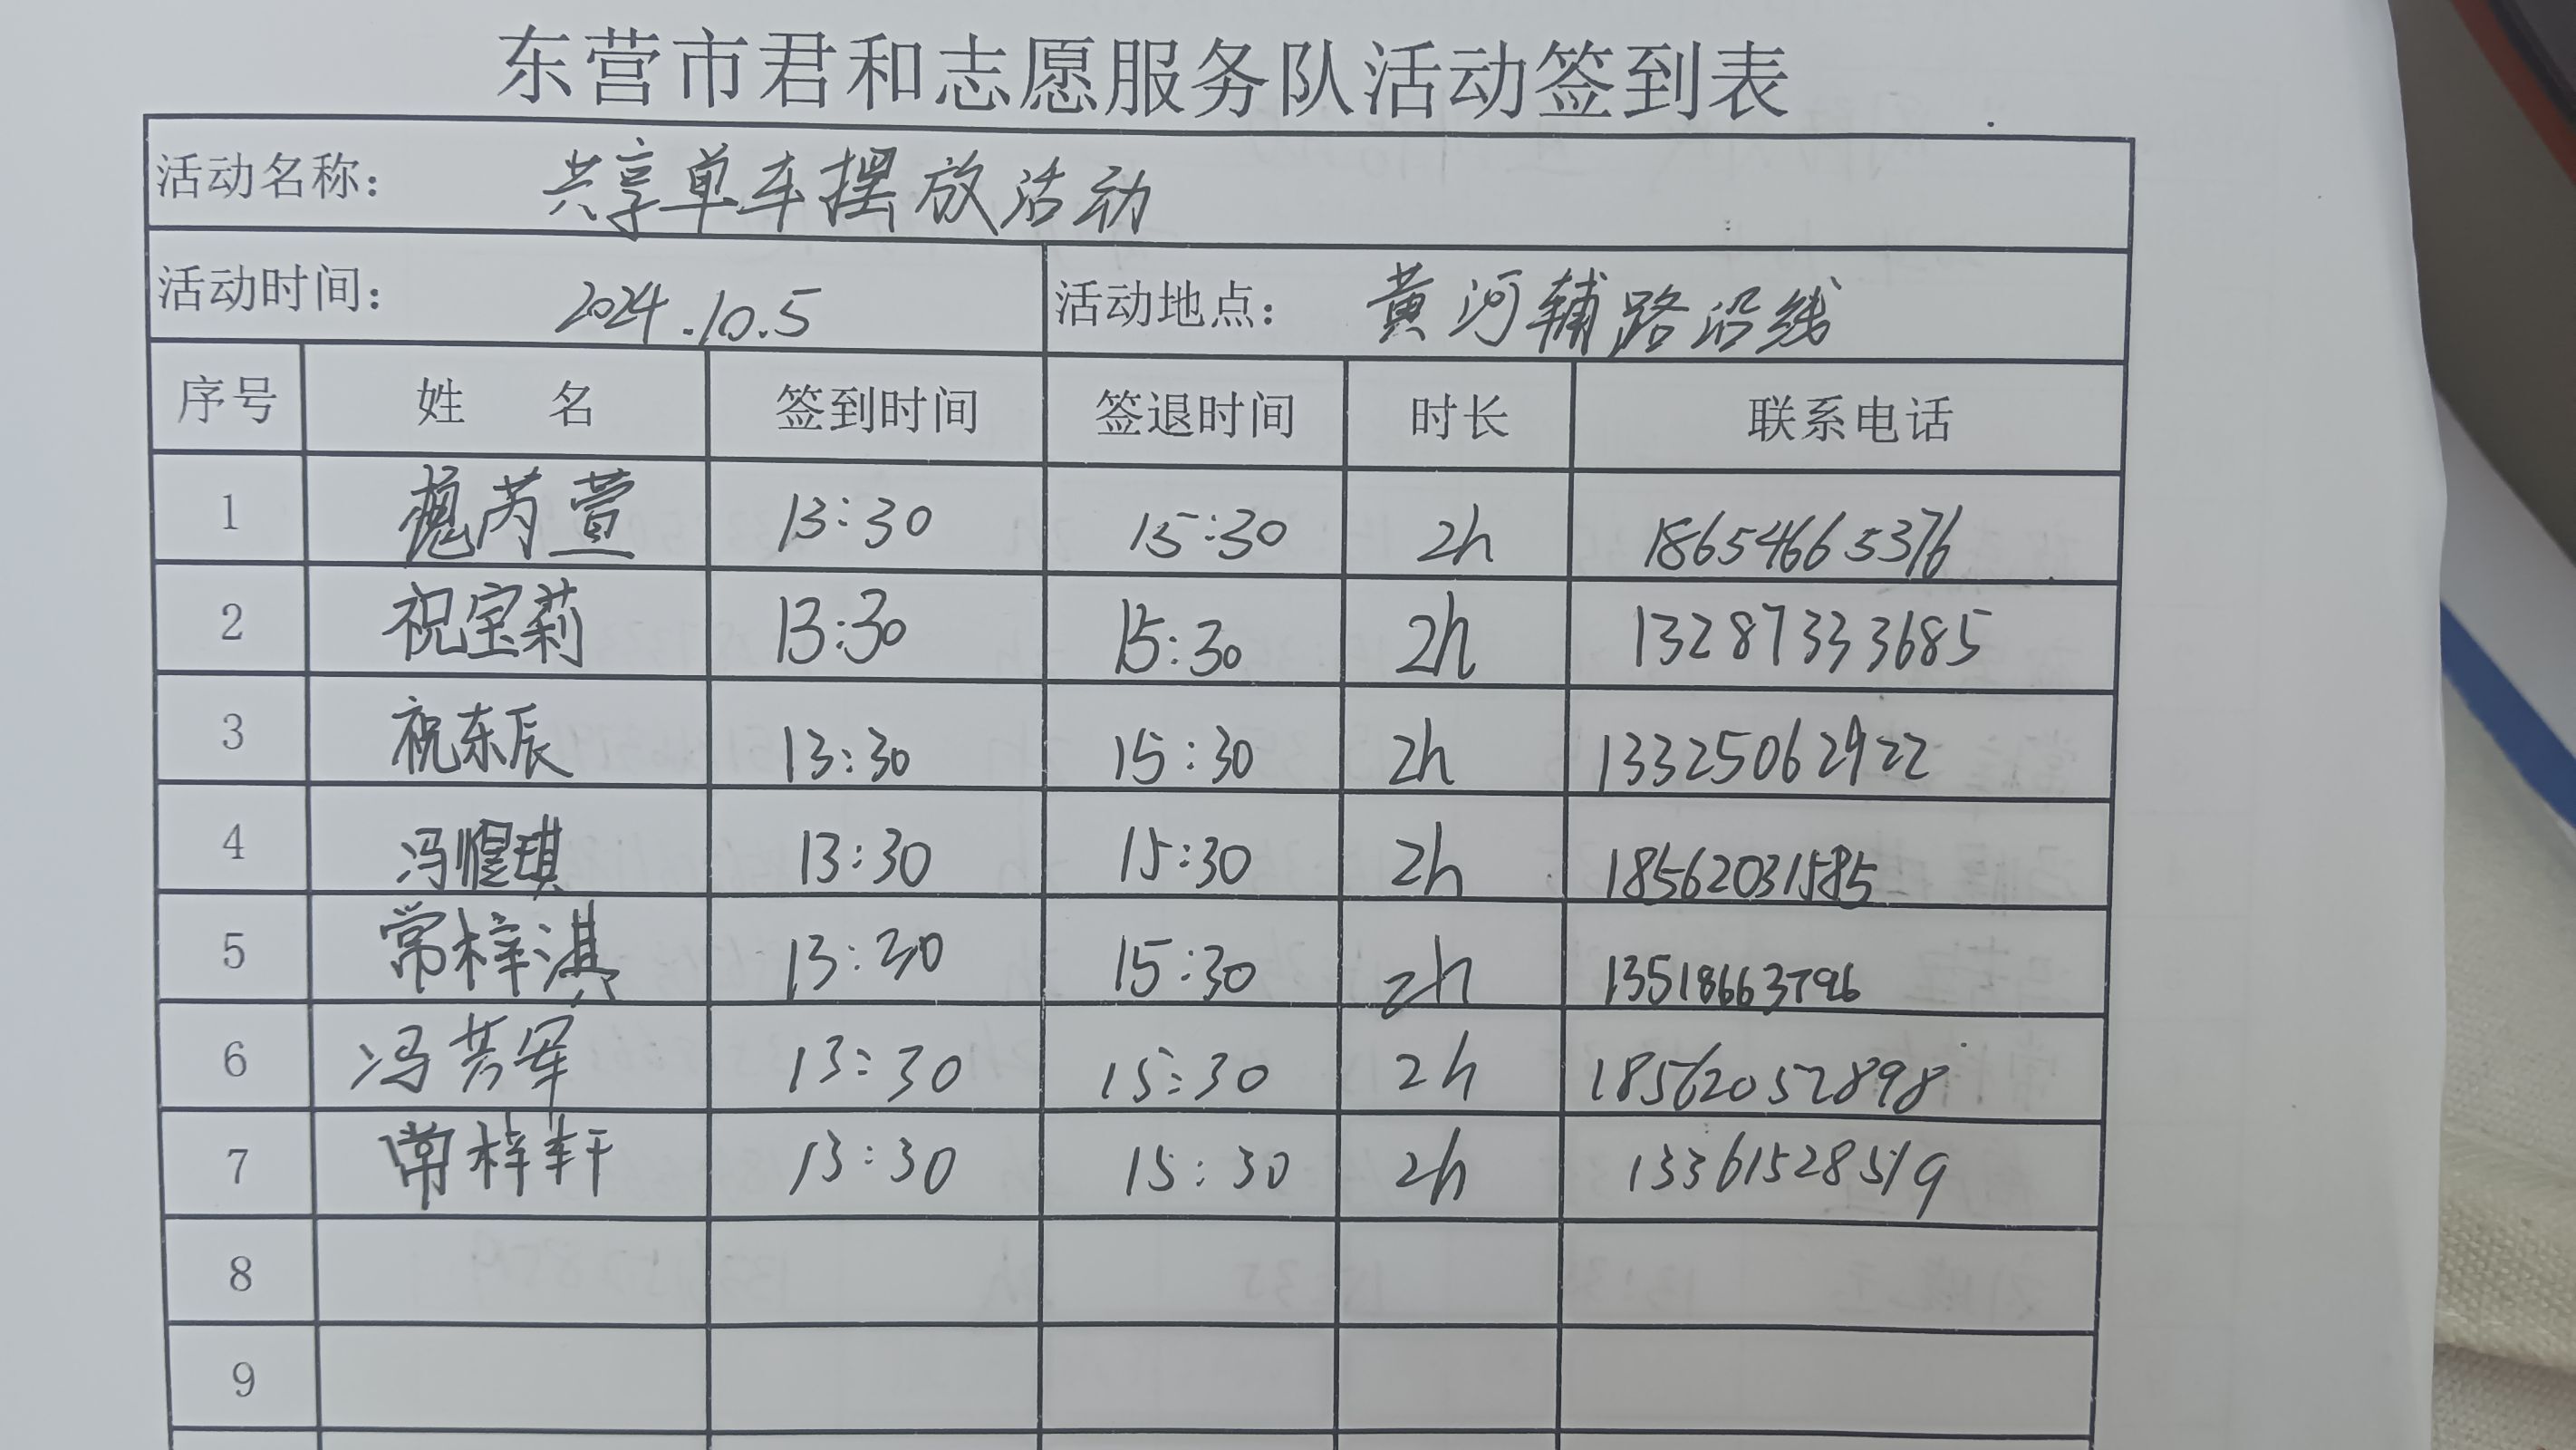 东营市君和志愿服务队活动签到表
活动名称： 共享单车摆放活动
活动时间： 2024.10.5 活动地点： 黄河辅路沿线
序号 姓 名 签到时间 签退时间 时长 联系电话
1 芮萱 13:30 15:30 2h 18654665376
2 祝宝莉 13:30 15:30 2h 13287333685
3 祝东辰 13:30 15:30 2h 13325062922
4 冯惺琪 13:30 15:30 2h 18562031585
5 常梓淇 13:30 15:30 2h 13518663796
6 冯芳军 13:30 15:30 2h 18562052898
7 常梓轩 13:30 15:30 2h 13361528519
8
9